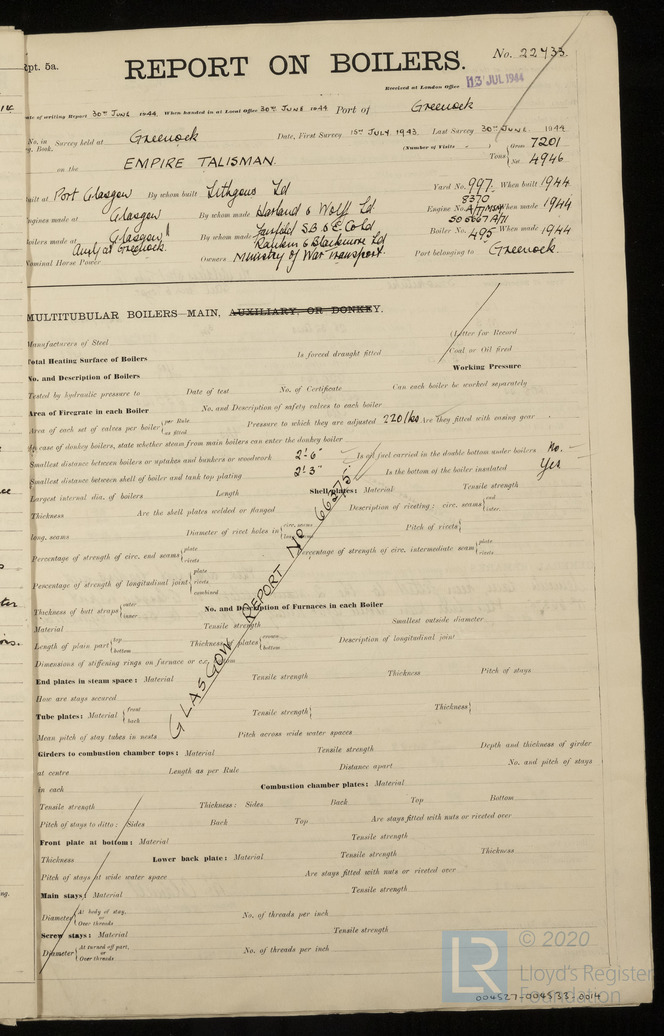 Rpt. 5a.
No. 22433.
REPORT ON BOILERS.
Received at London Office 13 JUL 1944
Date of writing Report 30th JUNE 1944 When handed in at Local Office 30th JUNE 1944 Port of Greenock
No. in Reg. Book. Survey held at Greenock Date, First Survey 1st JULY 1943 Last Survey 30th JUNE 1944
(Number of Visits )
on the EMPIRE TALISMAN. Tons Gross 7201 Net 4946
Built at Port Glasgow By whom built Lithgows Ld Yard No. 997 When built 1944
Engines made at Glasgow By whom made Harland & Wolff Ld Engine No. 8370 When made 1944
Boilers made at Glasgow By whom made Fairfield S.B. & E. Co Ld Boiler No. 495 When made 1944
Auxly at Greenock. Rankin & Blackmore Ld
Nominal Horse Power Owners Ministry of War Transport. Port belonging to Greenock
MULTITUBULAR BOILERS—MAIN, AUXILIARY, OR DONKEY.
Manufacturers of Steel (Letter for Record
Total Heating Surface of Boilers Is forced draught fitted Coal or Oil fired
No. and Description of Boilers Working Pressure
Tested by hydraulic pressure to Date of test No. of Certificate Can each boiler be worked separately
Area of Firegrate in each Boiler No. and Description of safety valves to each boiler
Area of each set of valves per boiler per Rule as fitted Pressure to which they are adjusted 220 lbs Are they fitted with easing gear
In case of donkey boilers, state whether steam from main boilers can enter the donkey boiler
Smallest distance between boilers or uptakes and bunkers or woodwork 2'-6" Is oil fuel carried in the double bottom under boilers No.
Smallest distance between shell of boiler and tank top plating 2'-3" Is the bottom of the boiler insulated Yes
Largest internal dia. of boilers Length Shell plates: Material Tensile strength
Thickness Are the shell plates welded or flanged Description of riveting: circ. seams end inter.
long. seams Diameter of rivet holes in circ. seams long. seams Pitch of rivets
Percentage of strength of circ. end seams plate rivets Percentage of strength of circ. intermediate seam plate rivets
Percentage of strength of longitudinal joint plate rivets combined
GLASGOW REPORT No 66275
Thickness of butt straps outer inner No. and Description of Furnaces in each Boiler
Material Tensile strength Smallest outside diameter
Length of plain part top bottom Thickness of plates crown bottom Description of longitudinal joint
Dimensions of stiffening rings on furnace or c.c. bottom
End plates in steam space: Material Tensile strength Thickness Pitch of stays
How are stays secured
Tube plates: Material front back Tensile strength Thickness
Mean pitch of stay tubes in nests Pitch across wide water spaces
Girders to combustion chamber tops: Material Tensile strength Depth and thickness of girder
at centre Length as per Rule Distance apart No. and pitch of stays
in each Combustion chamber plates: Material
Tensile strength Thickness: Sides Back Top Bottom
Pitch of stays to ditto: Sides Back Top Are stays fitted with nuts or riveted over
Front plate at bottom: Material Tensile strength
Thickness Lower back plate: Material Tensile strength Thickness
Pitch of stays at wide water space Are stays fitted with nuts or riveted over
Main stays: Material Tensile strength
Diameter At body of stay, or Over threads No. of threads per inch
Screw stays: Material Tensile strength
Diameter At turned off part, or Over threads No. of threads per inch
LR © 2020
Lloyd's Register
Foundation
004527-004533-0014